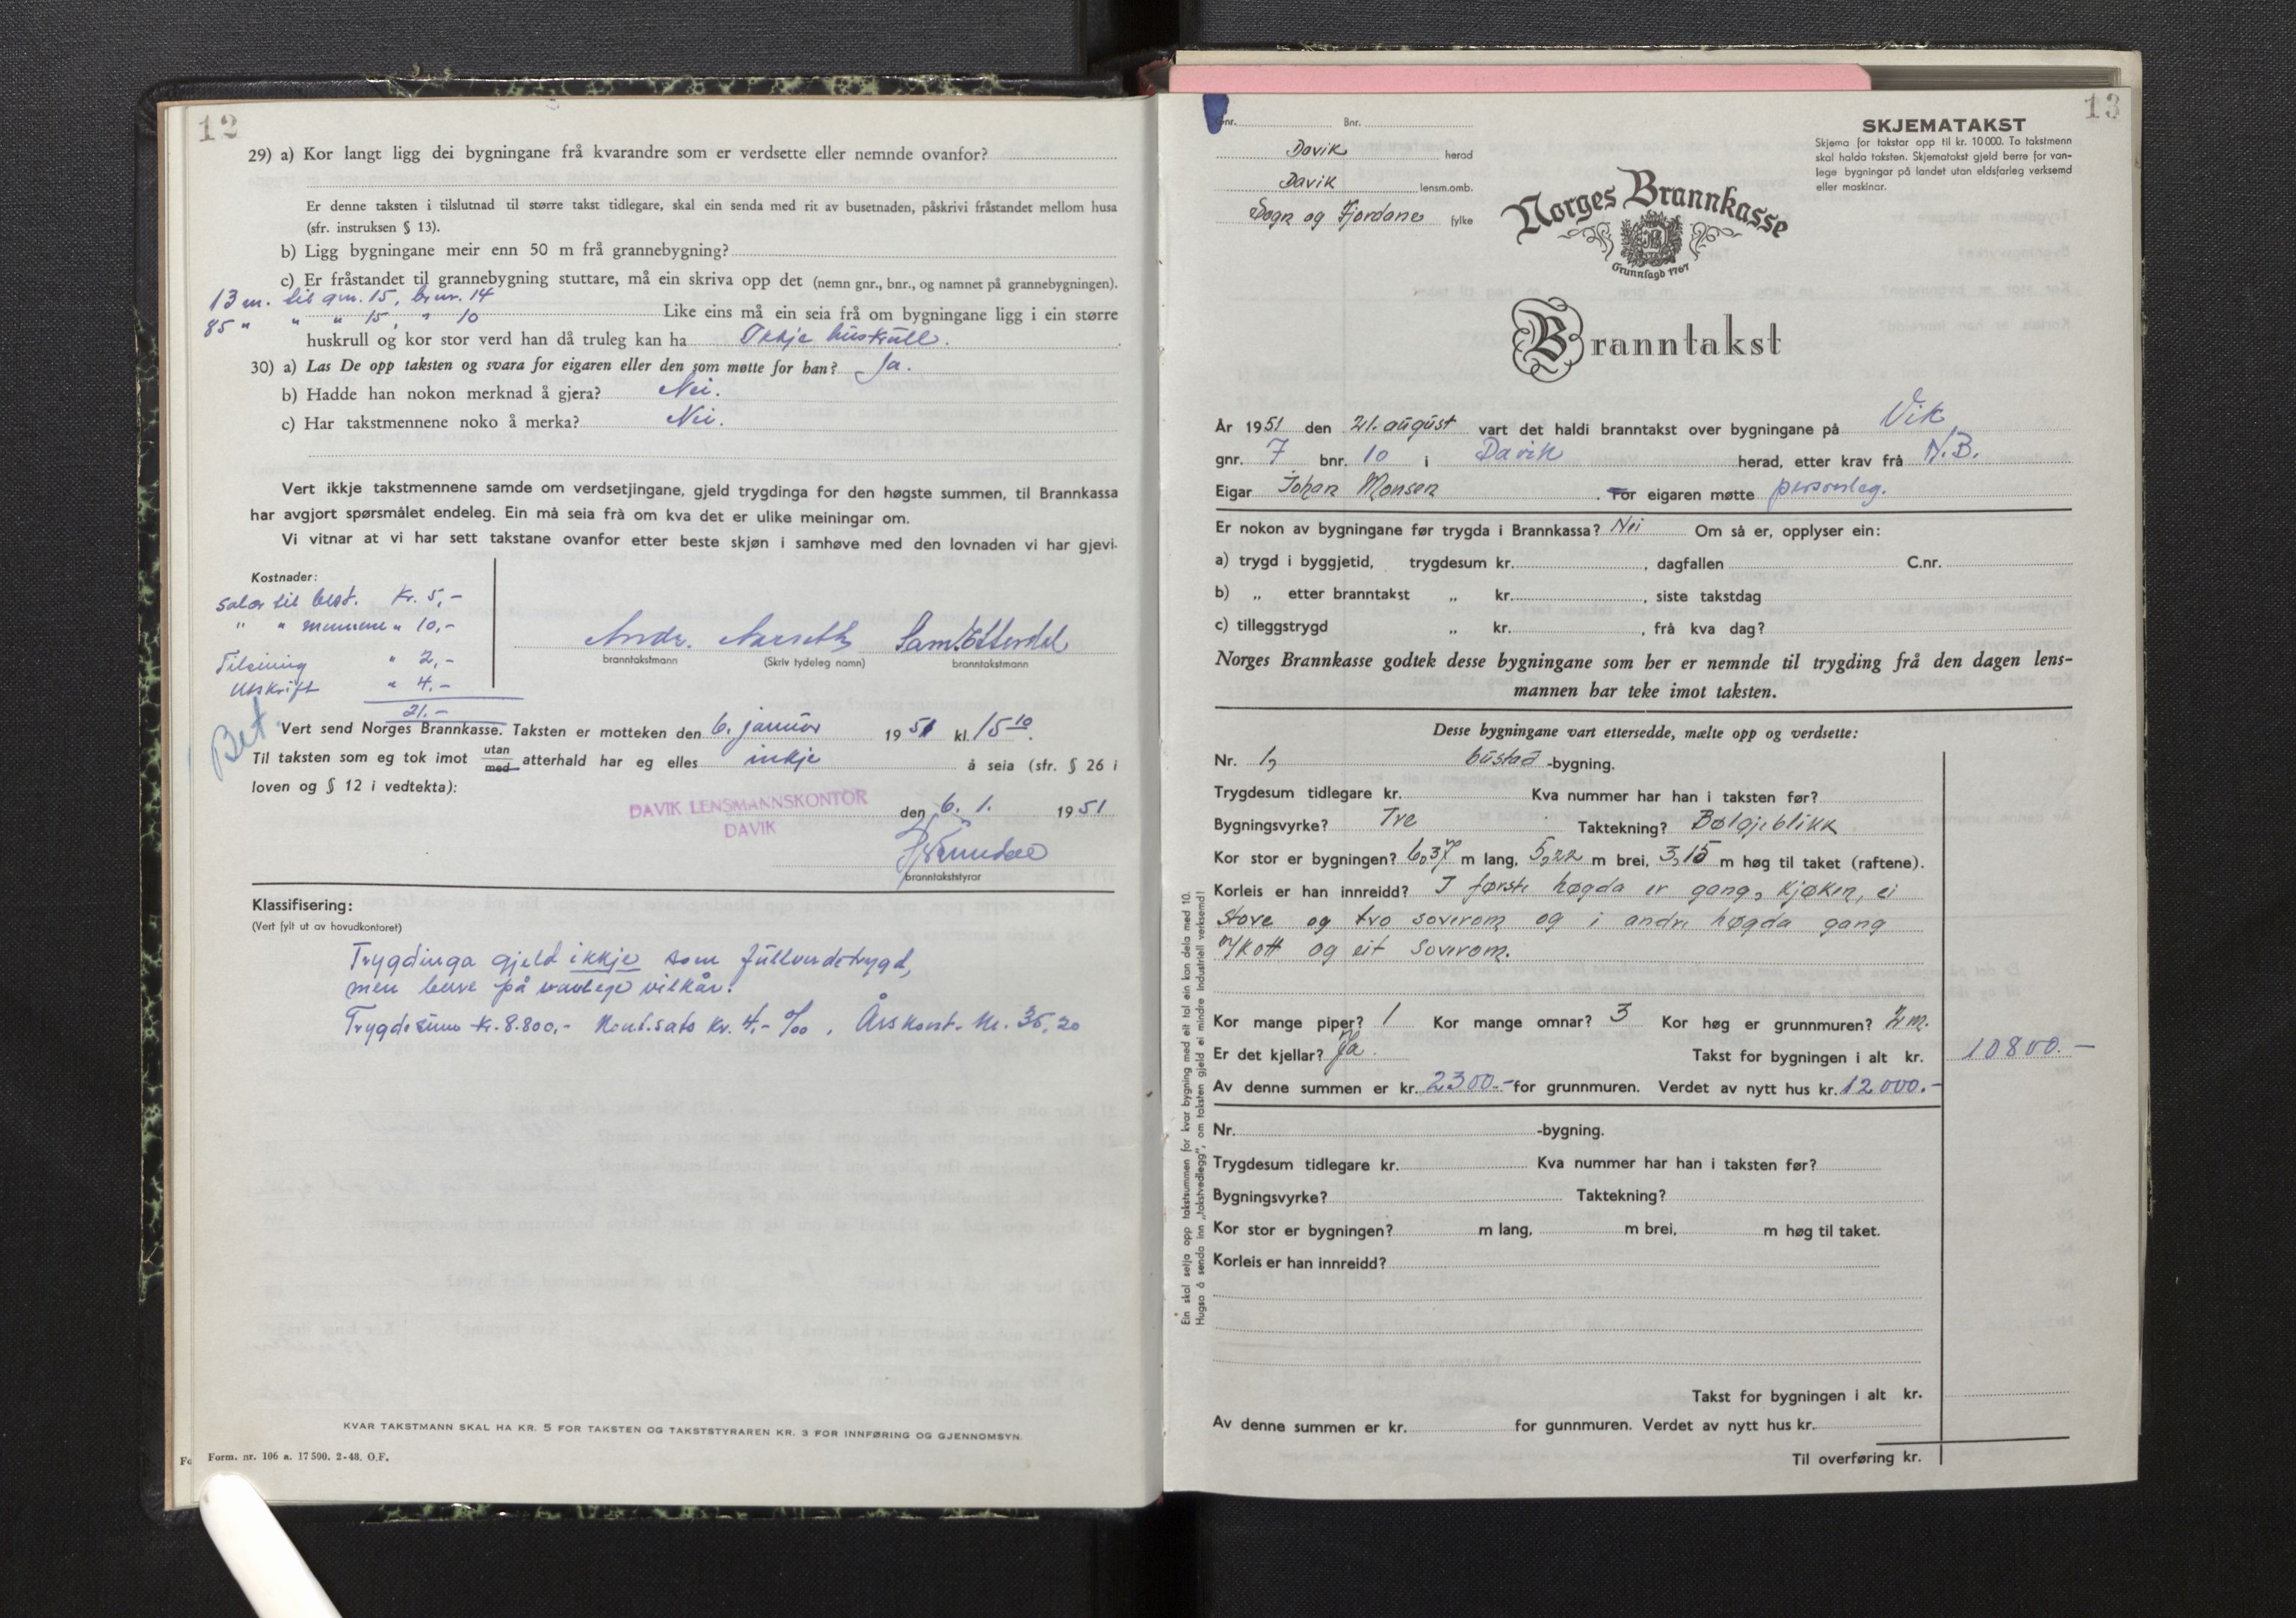 12
29) a) Kor langt ligg dei bygningane frå kvarandre som er verdsette eller nemnde ovanfor?
Er denne taksten i tilslutnad til større takst tidlegare, skal ein senda med rit av busetnaden, påskrivi fråstandet mellom husa
(sfr. instruksen § 13).
b) Ligg bygningane meir enn 50 m frå grannebygning?
c) Er fråstandet til grannebygning stuttare, må ein skriva opp det (nemn gnr., bnr., og namnet på grannebygningen).
13 m. til gnr. 15, brnr. 14
85 " " " 15, " 10 Like eins må ein seia frå om bygningane ligg i ein større
huskrull og kor stor verd han då truleg kan ha Ikkje huskrull.
30) a) Las De opp taksten og svara for eigaren eller den som møtte for han? Ja.
b) Hadde han nokon merknad å gjera? Nei.
c) Har takstmennene noko å merka? Nei.
Vert ikkje takstmennene samde om verdsetjingane, gjeld trygdinga for den høgste summen, til Brannkassa
har avgjort spørsmålet endeleg. Ein må seia frå om kva det er ulike meiningar om.
Vi vitnar at vi har sett takstane ovanfor etter beste skjøn i samhøve med den lovnaden vi har gjevi.
Kostnader:
Salær til best. Kr. 5,-
" " mennene " 10,-
" 2,-
Utskrift " 4,-
21.-
Andr. Aarseth Sam.
branntakstmann (Skriv tydeleg namn) branntakstmann
Bet.
Vert send Norges Brannkasse. Taksten er motteken den 6. januar 1951 kl. 15 10.
Til taksten som eg tok imot utan/med atterhald har eg elles inkje å seia (sfr. § 26 i
loven og § 12 i vedtekta):
DAVIK LENSMANNSKONTOR
DAVIK
den 6. 1. 1951
branntakststyrar
Klassifisering:
(Vert fylt ut av hovudkontoret)
Trygdinga gjeld ikkje som fullverdetrygd,
men berre på vanlege vilkår.
Trygdesum kr. 8.800,- Kont.sats kr. 4,- ‰, Årskont. kr. 35,20
KVAR TAKSTMANN SKAL HA KR. 5 FOR TAKSTEN OG TAKSTSTYRAREN KR. 3 FOR INNFØRING OG GJENNOMSYN.
Fo
Form. nr. 106 a. 17500. 2-48. O.F.
13
Gnr. Bnr.
Davik herad
Davik lensm.omb.
Sogn og Fjordane fylke
SKJEMATAKST
Skjema for takstar opp til kr. 10000. To takstmenn
skal halda taksten. Skjematakst gjeld berre for van-
lege bygningar på landet utan eldsfarleg verksemd
eller maskinar.
Norges Brannkasse
Grunnlagd 1767
Branntakst
År 1951 den 21. august vart det haldi branntakst over bygningane på Vik
gnr. 7 bnr. 10 i Davik herad, etter krav frå N.B.
Eigar Johan Monsen. For eigaren møtte personleg.
Er nokon av bygningane før trygda i Brannkassa? Nei Om så er, opplyser ein:
a) trygd i byggjetid, trygdesum kr. , dagfallen C.nr.
b) „ etter branntakst „ kr. , siste takstdag
c) tilleggstrygd „ kr. , frå kva dag?
Norges Brannkasse godtek desse bygningane som her er nemnde til trygding frå den dagen lens-
mannen har teke imot taksten.
Desse bygningane vart ettersedde, mælte opp og verdsette:
Nr. 1, bustad -bygning.
Trygdesum tidlegare kr. Kva nummer har han i taksten før?
Bygningsvyrke? Tre Taktekning? Bølgjeblikk
Kor stor er bygningen? 6,37 m lang, 5,22 m brei, 3,15 m høg til taket (raftene).
Korleis er han innreidd? I første høgda er gang, kjøken, ei
stove og tvo soverom og i andre høgda gang
m/kott og eit soverom.
Kor mange piper? 1 Kor mange omnar? 3 Kor høg er grunnmuren? 2 m.
Er det kjellar? Ja. Takst for bygningen i alt kr. 10800.-
Av denne summen er kr. 2300.- for grunnmuren. Verdet av nytt hus kr. 12.000.-
Nr. -bygning.
Trygdesum tidlegare kr. Kva nummer har han i taksten før?
Bygningsvyrke? Taktekning?
Kor stor er bygningen? m lang, m brei, m høg til taket.
Korleis er han innreidd?
Takst for bygningen i alt kr.
Av denne summen er kr. for gunnmuren. Verdet av nytt hus kr.
Til overføring kr.
Ein skal setja opp takstsummen for kvar bygning med eit tal ein kan dela med 10.
Hugsa å senda inn „takstvedlegg", om taksten gjeld ei mindre industriell verksemd!